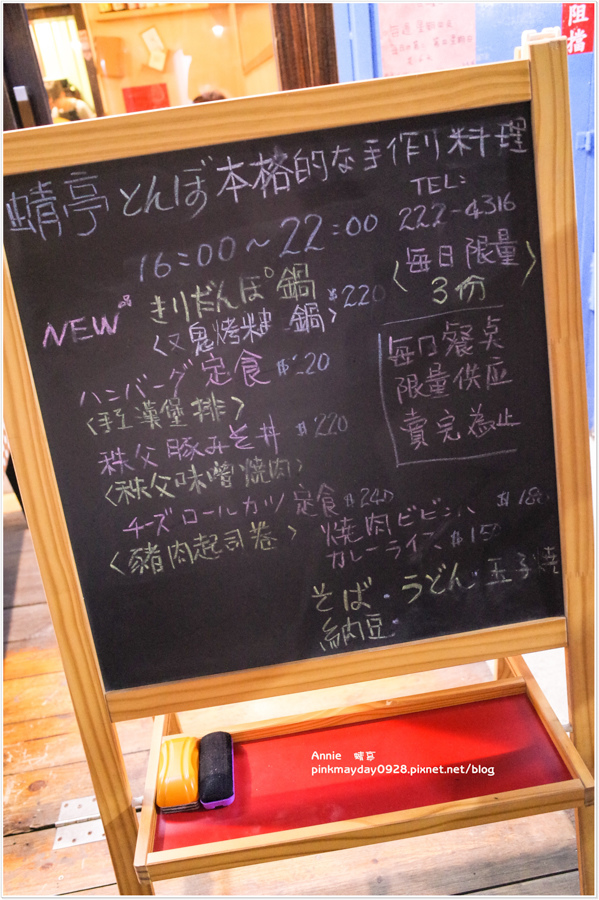 阻擋
蜻亭とんぼ本格的な手作り料理
TEL:
222-4316
16:00～22:00
〈每日限量〉
3份
NEW
きりだんぽ鍋
$220
鍋〉
ハンバーグ定食
〈手工漢堡排〉
每日餐点
限量供应
賣完為止
秩父豚みそ丼 $220
〈秩父味噌燒肉〉
チーズロールカツ定食 $240
〈豬肉起司卷〉
焼肉ビビンバ $180
カレーライス $150
そば・うどん・玉子焼
納豆・
Annie 蜻亭
pinkmayday0928.pixnet.net/blog